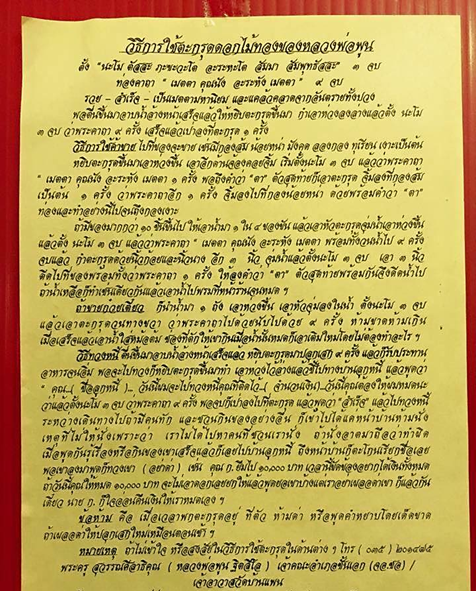 วิธีการใช้ตะกรุดดอกไม้ทองของหลวงพ่อพูน
ตั้ง "นะโม ตัสสะ ภะขะวะโต อะระหะโต สัมมา สัมพุทธัสสะ" ๓ จบ
ท่องคาถา " เมตตา คุณนัง อะระหัง เมตตา " ๙ จบ
รวย - สำเร็จ - เป็นเมตตามหานิยม และแคล้วคลาดจากอันตรายทั้งปวง
พอตื่นขึ้นมาอาบน้ำล้างหน้าเสร็จแล้วให้หยิบตะกรุดขึ้นมา กำเอาห่วงลงล่างแล้วตั้ง นะโม
๓ จบ ว่าพระคาถา ๙ ครั้ง เสร็จแล้วเป่าลงที่ตะกรุด ๑ ครั้ง
วิธีการใช้ค้าขาย ไปที่ของจะขาย เช่นมีกองส้ม น้อยหน่า มังคุด ลองกอง ทุเรียน เงาะเป็นต้น
หยิบตะกรุดขึ้นมาเอาห่วงขึ้น เอาอีกด้านจ้องคอยจิ้ม เริ่มตั้งนะโม ๓ จบ แล้วว่าพระคาถา
" เมตตา คุณนัง อะระหัง เมตตา ๑ ครั้ง พอถึงคำว่า "ตา" ตัวสุดท้ายก็เอาตะกรุด จิ้มลงที่กองส้ม
เป็นต้น ๑ ครั้ง ว่าพระคาถาอีก ๑ ครั้ง จิ้มลงไปที่กองน้อยหน่า ด้วยพร้อมคำว่า "ตา"
ทองและทำอย่างนี้ไปจนถึงกองเงาะ
ถ้ามีของมากกว่า ๑๐ ชิ้นขึ้นไป ให้เอาน้ำมา ๑ ใน ๔ ของขัน แล้วเอาหัวตะกรุดจุ่มน้ำเอาห่วงขึ้น
แล้วตั้ง นะโม ๓ จบ แล้วว่าพระคาถา " เมตตา คุณนัง อะระหัง เมตตา พร้อมทั้งวนน้ำไป ๙ ครั้ง
จบแล้ว กำตะกรุดด้วยนิ้วกลอยและนิ้วนาง อีก ๓ นิ้ว จุ่มน้ำแล้วตั้งนะโม ๓ จบ เอา ๓ นิ้ว
ดีดไปที่ของพร้อมทั้งว่าพระคาถา ๑ ครั้ง ให้ลงคำว่า "ตา" ตัวสุดท้ายพร้อมกันจึงดีดน้ำไป
ถ้าน้ำเหลือก็ทำเช่นเดียวกันแล้วเอาน้ำไปพรมที่หน้าร้านจนหมด ๆ
ถ้าขายก๋วยเตี๋ยว ก็นำน้ำมา ๑ ถัง เอาห่วงขึ้น เอาหัวจุ่มลงในน้ำ ตั้งนะโม ๓ จบ
แล้วเอาตะกรุดวนทางขวา ว่าพระคาถาไปด้วยนับไปด้วย ๙ ครั้ง ห้ามขาดห้ามเกิน
เมื่อเสร็จแล้วเอาน้ำใส่หม้อต้ม ของที่ดีก็ให้เขากินเมื่อน้ำนั้นหมดก็เอาเติมใหม่โดยไม่ต้องทำอะไร ๆ
วิธีทวงหนี้ ตื่นขึ้นมาอาบน้ำล้างหน้าเสร็จแล้ว หยิบตะกรุดมาปลุกเสก ๙ ครั้ง แล้วก็รับประทาน
อาหารจนอิ่ม พอจะไปทวงก็หยิบตะกรุดขึ้นมากำ เอาห่วงไว้ล่างแล้วชี้ไปทางบ้านลูกหนี้ แล้วพูดว่า
" คุณ...( ชื่อลูกหนี้ )... วันนี้ผมจะไปทวงหนี้คุณที่ติดไว้...( จำนวนเงิน)...วันนี้คุณต้องให้ผมหมดนะ
ว่าแล้วตั้งนะโม ๓ จบ ว่าพระคาถา ๙ ครั้ง พอจบก็เป่าลงไปที่ตะกรุด แล้วพูดว่า "สำเร็จ" แล้วไปทวงหนี้
ระหว่างเดินทางไปถ้ามีคนทัก และชวนกินของอย่างอื่น ก็เข้าไปได้แต่หน้าบ้านห้ามนั่ง
เหตุที่ไม่ให้นั่งเพราะว่า เราไม่ได้ไปหาคนที่ชวนเรานั่ง ถ้านั่งอาตมาถือว่าทำผิด
เมื่อพูดกันรู้เรื่องหรือกินของเขาเสร็จแล้วก็เลยไปบ้านลูกหนี้ ถึงหน้าบ้านก็ตะโกนเรียกชื่อเลย
พอเขาลงมาพูดก็ทวงเขา ( อยาดา ) เช่น คุณ ก.ยืมไป ๑๐,๐๐๐ บาท เวลานี้ขัดของอยากได้เงินทั้งหมด
ถ้าวันนี้คุณให้หมด ๑๐,๐๐๐ บาท จะไม่เอาดอกเลยยกให้แล้วพูดยอเขาบางแต่เราอย่าเผลอตาเขา ก็แล้วกัน
เดี๋ยว นาย ก. ก็ใจอ่อนคืนเงินให้เราหมดเอง ๆ
ขอห้าม คือ เมื่อเวลาพกตะกรุดอยู่ ที่ตัว ห้ามด่า หรือพูดคำหยาบโดยเด็ดขาด
ถ้าเผลอด่าให้ปลุกเสกใหม่เหมือนตอนเช้า ๆ
หมายเหตุ ถ้าไม่เข้าใจ หรือสงสัยในวิธีการใช้ตะกรุดในด้านต่าง ๆ โทร ( ๐๓๕ ) ๒๐๑๔๗๕
พระครู สุวรรณศีลาธิคุณ ( หลวงพ่อพูน ฐิตสีโล ) เจ้าคณะอำเภอชั้นเอก (จอ.ชอ) /
เจ้าอาวาสวัดบ้านแพน